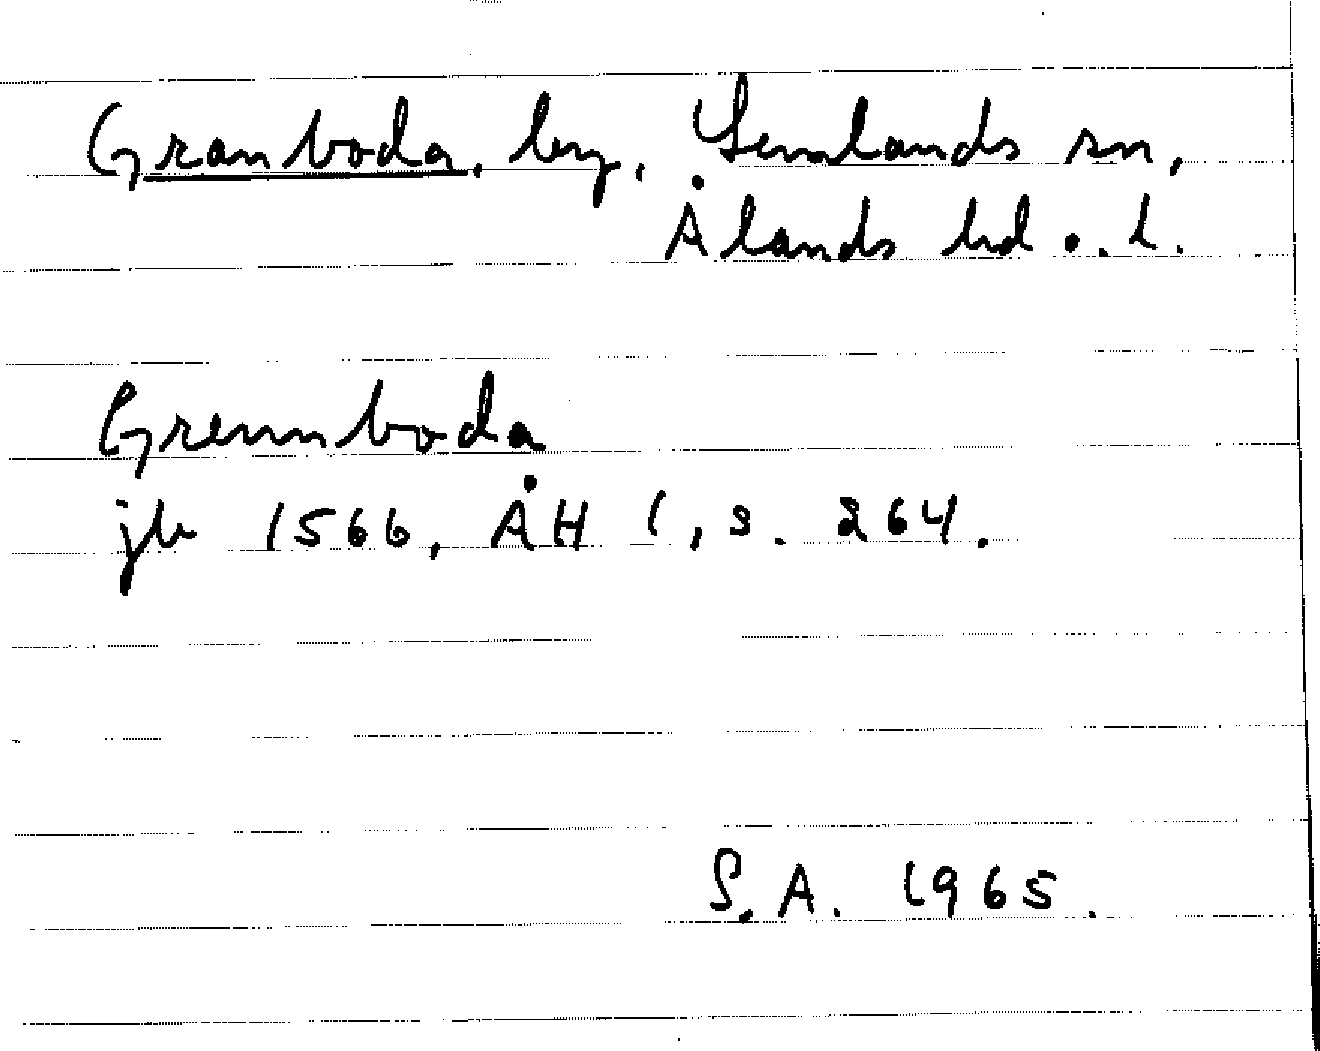 Granboda, by, Lemlands sn,
Ålands hd o. l.
Grennboda
jb 1566, ÅH 1, s. 264.
S. A. 1965.